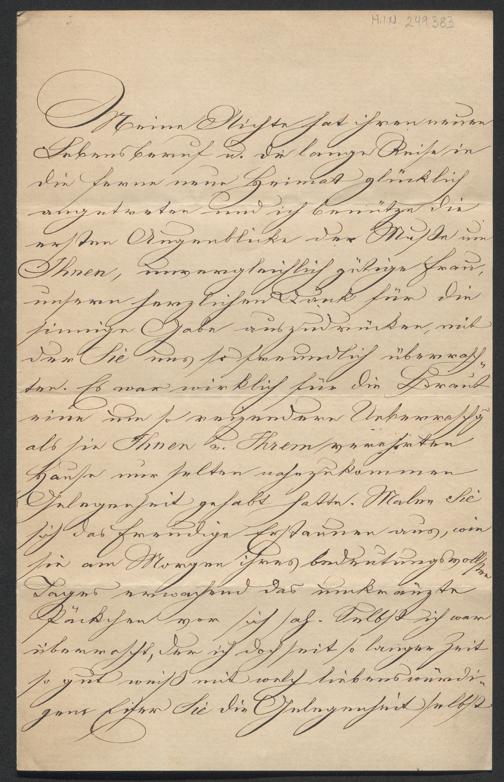 H.I.N. 249383
Meine Nichte hat ihren neuen
Lebensberuf u. die lange Reise in
die ferne neue Heimat glücklich
angetreten und ich benütze die
ersten Augenblicke der Muße um
Ihnen, unvergleichlich gütige Frau,
unsern herzlichen Dank für die
sinnige Gabe auszudrücken, mit
der Sie uns so freundlich überrasch-
ten. Es war wirklich für die Braut
eine um so reizendere Ueberraschg
als sie Ihnen u. Ihrem verehrten
Hause nur selten nahezukommen
Gelegenheit gehabt hatte. Malen Sie
sich das freudige Erstaunen aus, wie
sie am Morgen ihres bedeutungsvollsten
Tages erwachend das umkränzte
Päckchen vor sich sah. Selbst ich war
überrascht, der ich doch seit so langer Zeit
so gut weiß mit welch liebenswürdi-
gem Eifer Sie die Gelegenheit selbst